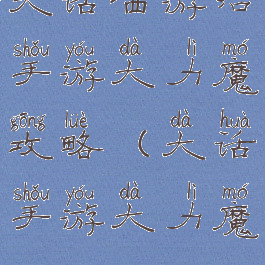 大话 游
shǒu yóu dà lì mó
手游大力魔
gōng lüè dà huà
攻略(大话
shǒu yóu dà lì mó
手游大力魔